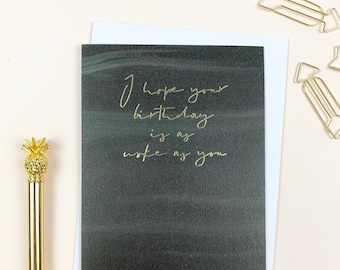 I hope your
birthday
is as
woke as you